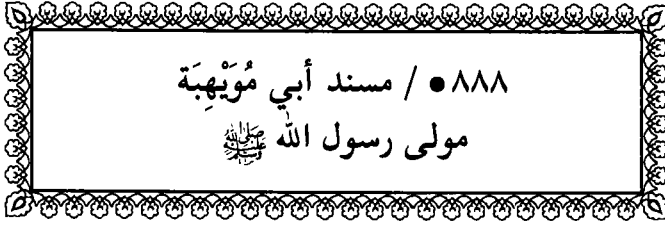 ٨٨٨ ● / مسند أبي مُوَيْهِبَة
مولى رسول الله ﷺ